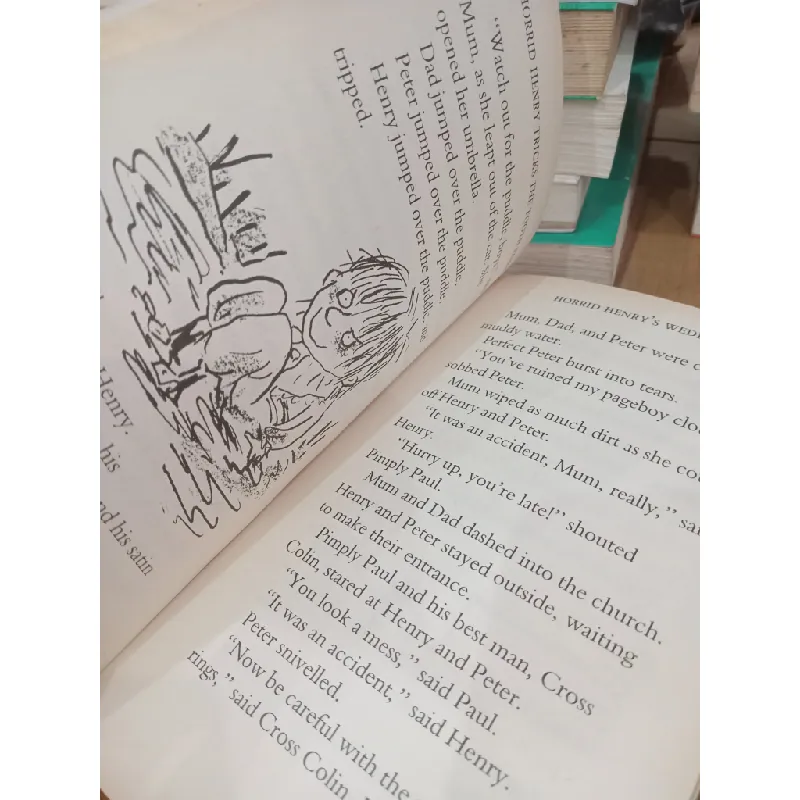 HORRID HENRY TRICKS THE
"Watch out for the puddle,
Mum, as she leapt out of the car
opened her umbrella.
Dad jumped over the puddle.
Peter jumped over the puddle.
Henry jumped over the puddle, and
tripped.
Henry.
his
and his satin
HORRID HENRY'S WED
Mum, Dad, and Peter were c
muddy water.
Perfect Peter burst into tears.
"You've ruined my pageboy clo
sobbed Peter.
Mum wiped as much dirt as she cou
off Henry and Peter.
"It was an accident, Mum, really," sai
Henry.
"Hurry up, you're late!" shouted
Pimply Paul.
Mum and Dad dashed into the church.
Henry and Peter stayed outside, waiting
to make their entrance.
Pimply Paul and his best man, Cross
Colin, stared at Henry and Peter.
"You look a mess," said Paul.
"It was an accident," said Henry.
Peter snivelled.
"Now be careful with the
rings," said Cross Colin.